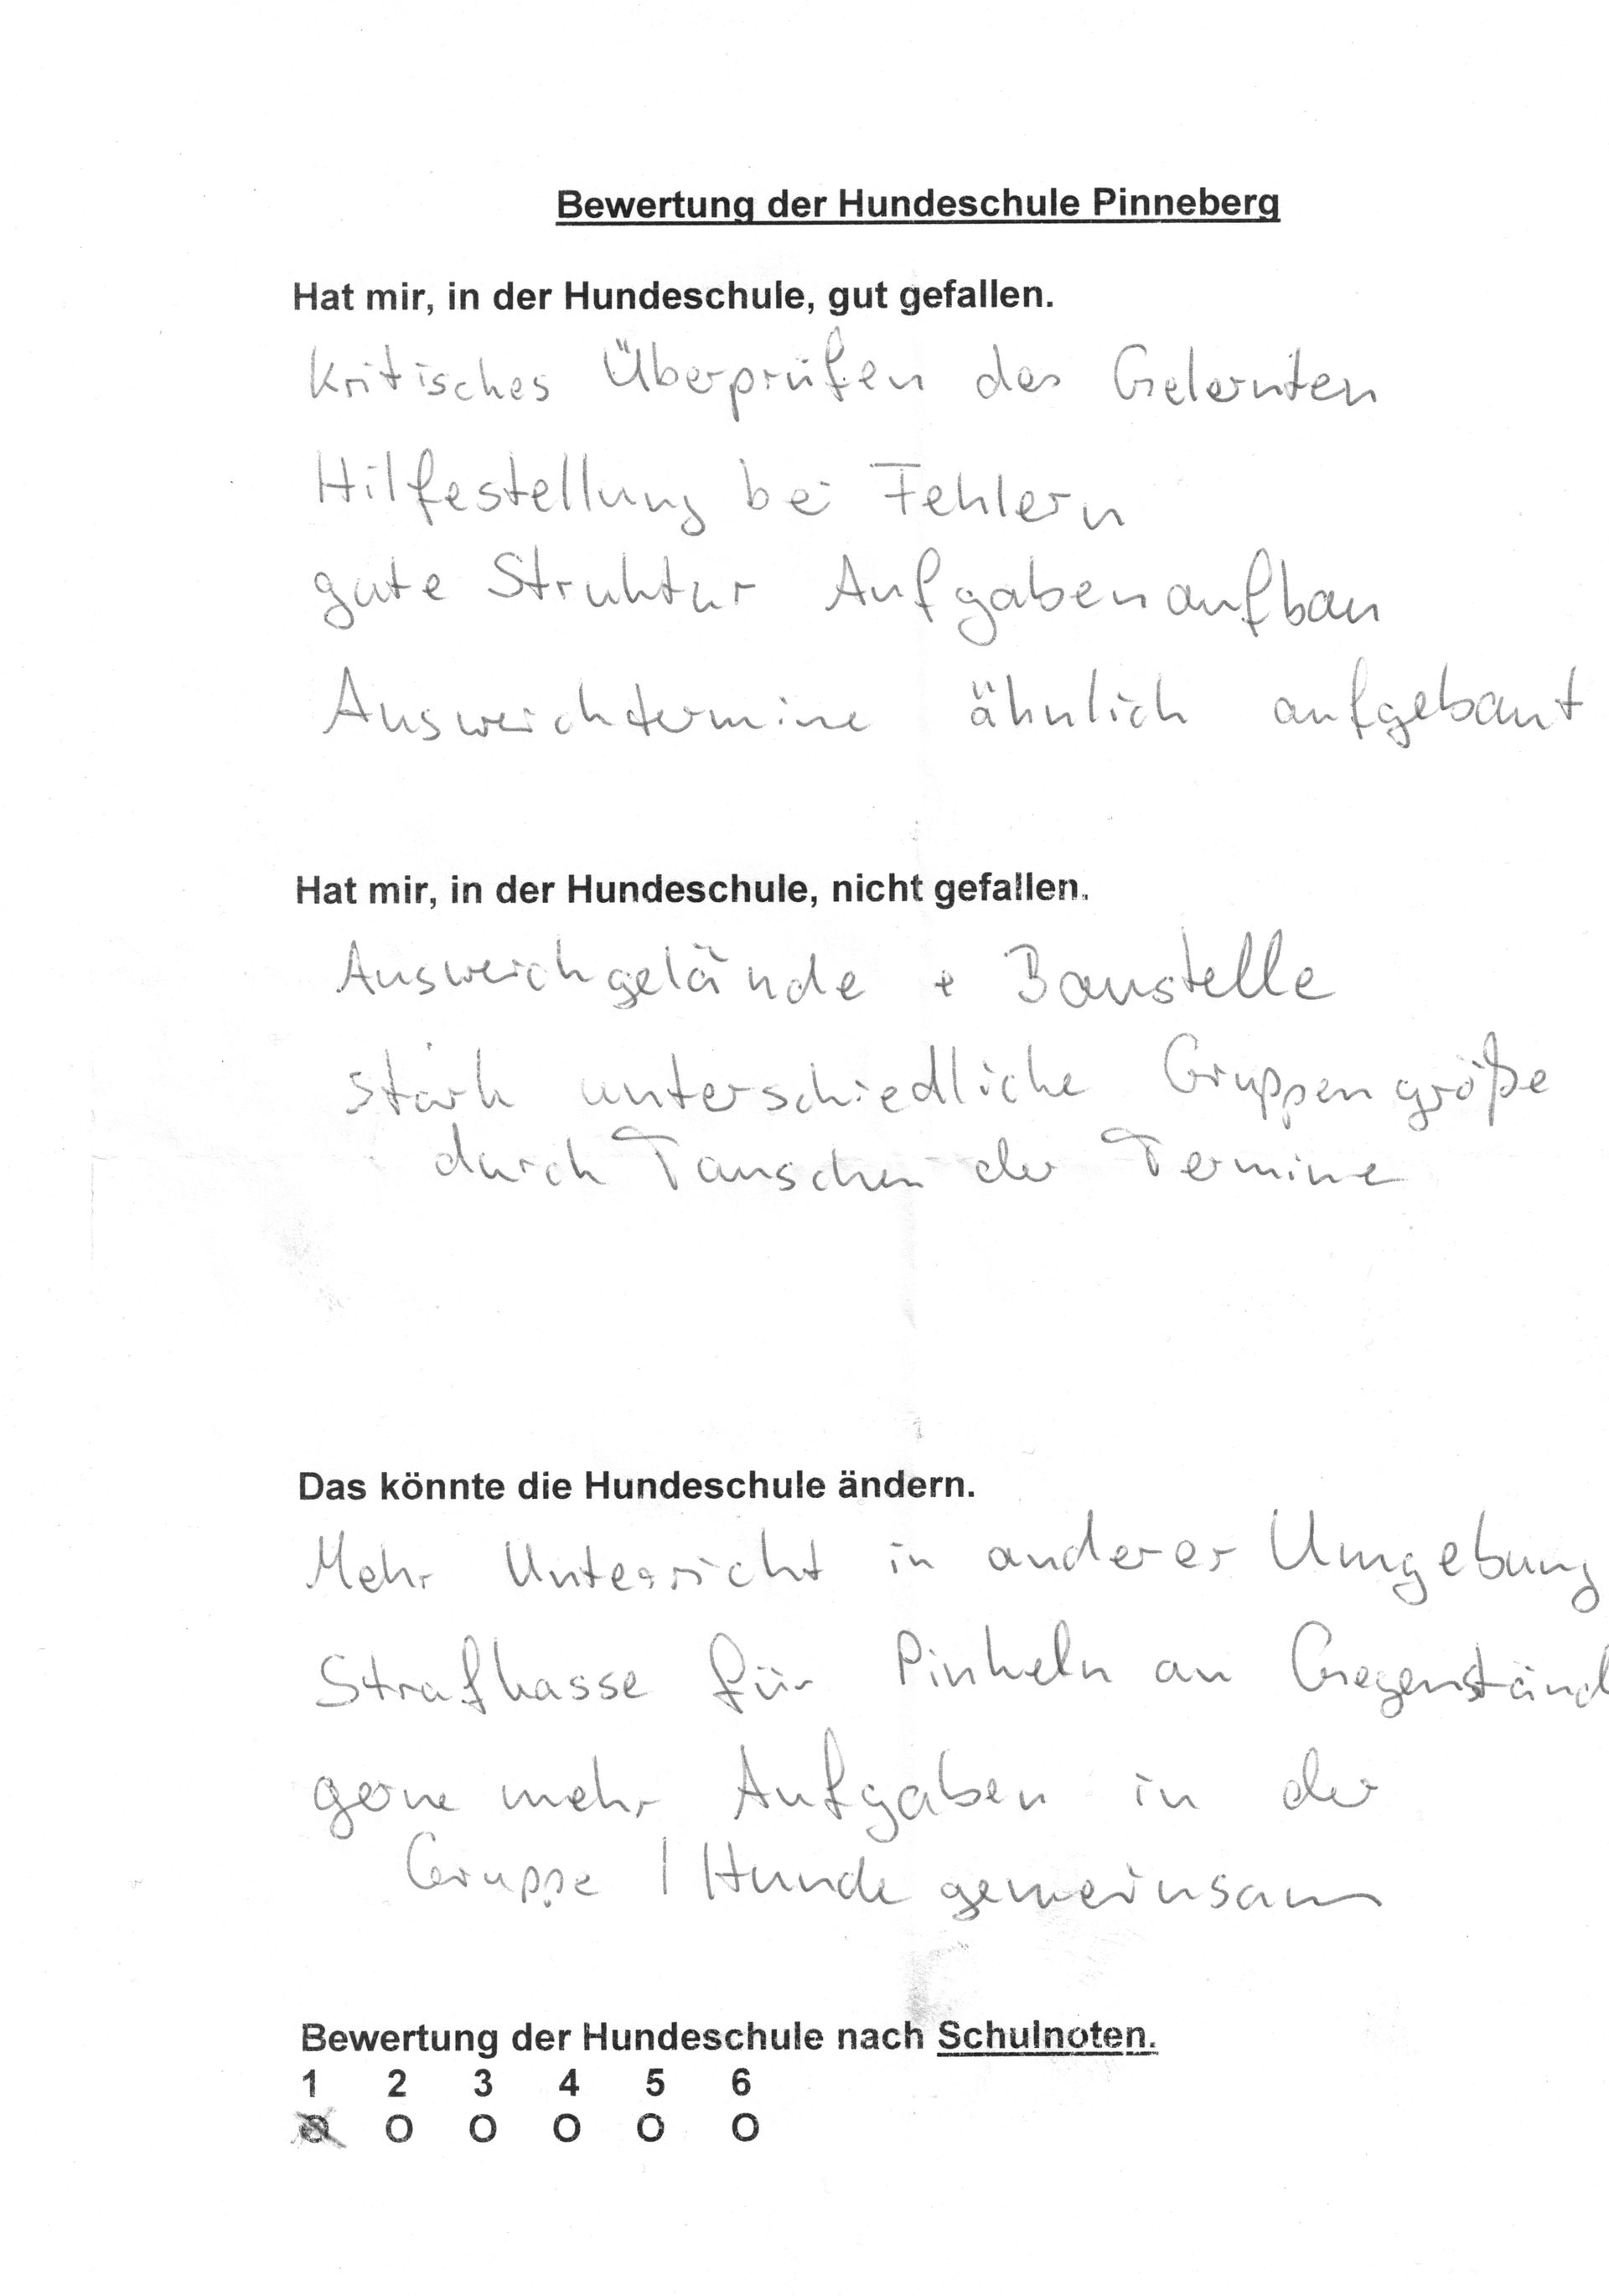 Bewertung der Hundeschule Pinneberg
Hat mir, in der Hundeschule, gut gefallen.
Kritisches Überprüfen des Gelernten
Hilfestellung bei Fehlern
gute Struktur Aufgabenaufbau
Ausweichtermine ähnlich aufgebaut
Hat mir, in der Hundeschule, nicht gefallen.
Ausweichgelände + Baustelle
stark unterschiedliche Gruppengröße
durch Tauschen der Termine
Das könnte die Hundeschule ändern.
Mehr Unterricht in anderer Umgebung
Strafkasse für Pinkeln an Gegenständ
gerne mehr Aufgaben in der
Gruppe / Hunde gemeinsam
Bewertung der Hundeschule nach Schulnoten.
1 2 3 4 5 6